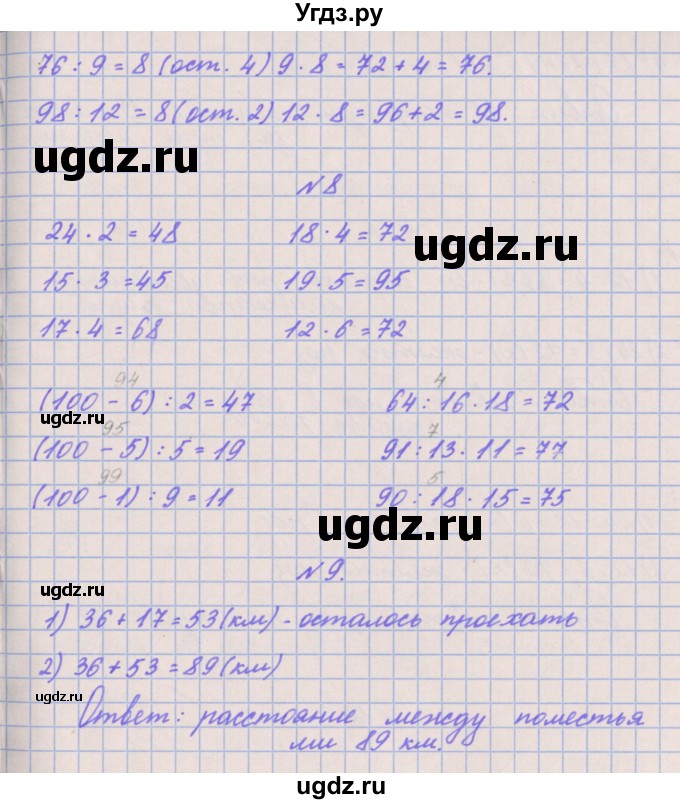 Угдз.ру
76 : 9 = 8 (ост. 4) 9 · 8 = 72 + 4 = 76.
98 : 12 = 8 (ост. 2) 12 · 8 = 96 + 2 = 98.
ugdz.ru
№8
24 · 2 = 48 18 · 4 = 72
ugdz.ru
15 · 3 = 45 19 · 5 = 95
17 · 4 = 68 12 · 6 = 72
94 4
(100 - 6) : 2 = 47 64 : 16 · 18 = 72
ugdz.ru
95 7
(100 - 5) : 5 = 19 91 : 13 · 11 = 77
99 5
(100 - 1) : 9 = 11 90 : 18 · 15 = 75
ugdz.ru
№9.
ugdz.ru
1) 36 + 17 = 53 (км) - осталось проехать
2) 36 + 53 = 89 (км)
ugdz.ru
Ответ: расстояние между поместья
ми 89 км.
ugdz.ru